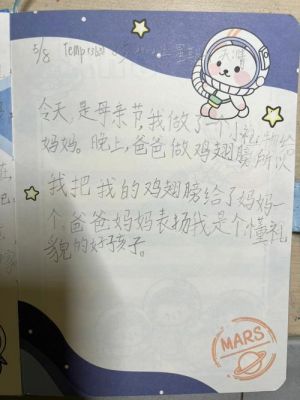 5/8 星
今天,是母亲节,我做了一个小礼物给
妈妈。晚上,爸爸做鸡翅膀所以
我把我的鸡翅膀给了妈妈一
个,爸爸妈妈表扬我是个懂礼
貌的好孩子。
MARS